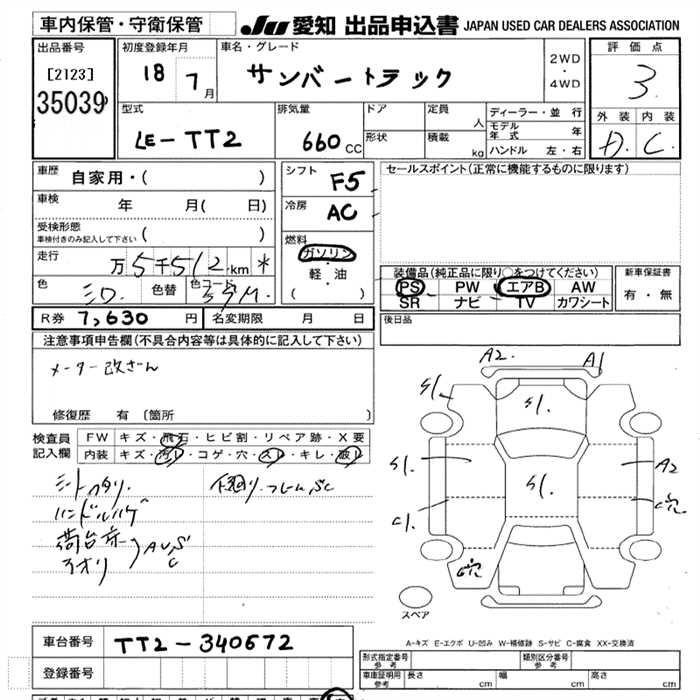 車内保管・守衛保管
JU 愛知 出品申込書 JAPAN USED CAR DEALERS ASSOCIATION
出品番号
[2123]
35039
初度登録年月
18 7月
車名・グレード
サンバートラック
2WD
・
4WD
評価点
3
外装 内装
D. C.
型式
LE-TT2
排気量
660cc
ドア
形状
定員
人
積載
kg
ディーラー・並行
モデル年式 年
ハンドル 左・右
車歴
自家用・( )
車検 年 月( 日)
受検形態
車検付きのみ記入して下さい ( )
走行
万5千512km *
色
シロ
色替
色コード
R券 7,630円
名変期限 月 日
シフト
F5
冷房
AC
燃料
ガソリン
・
軽・油
( )
セールスポイント(正常に機能するものに限ります)
装備品(純正品に限り○をつけてください)
PS PW エアB AW
SR ナビ TV カワシート
新車保証書
有・無
後日品
注意事項申告欄(不具合内容等は具体的に記入して下さい)
メーター改ざん
修復歴 有 〔箇所 〕
検査員
記入欄
FW キズ・飛石・ヒビ割・リペア跡・X要
内装 キズ・汚レ・コゲ・穴・スレ・キレ・破レ
ハンドルハゲ
荷台床
アオリ
A2. A1
S1.
S1.
S1.
A2
S1.
C1.
C穴
C穴
スペア
A-キズ E-エクボ U-凹み W-補修跡 S-サビ C-腐食 XX-交換済
車台番号 TT2-340672
登録番号
形式指定番号
参考
類別区分番号
参考
車庫証明用
参考
長さ cm 幅 cm 高さ cm